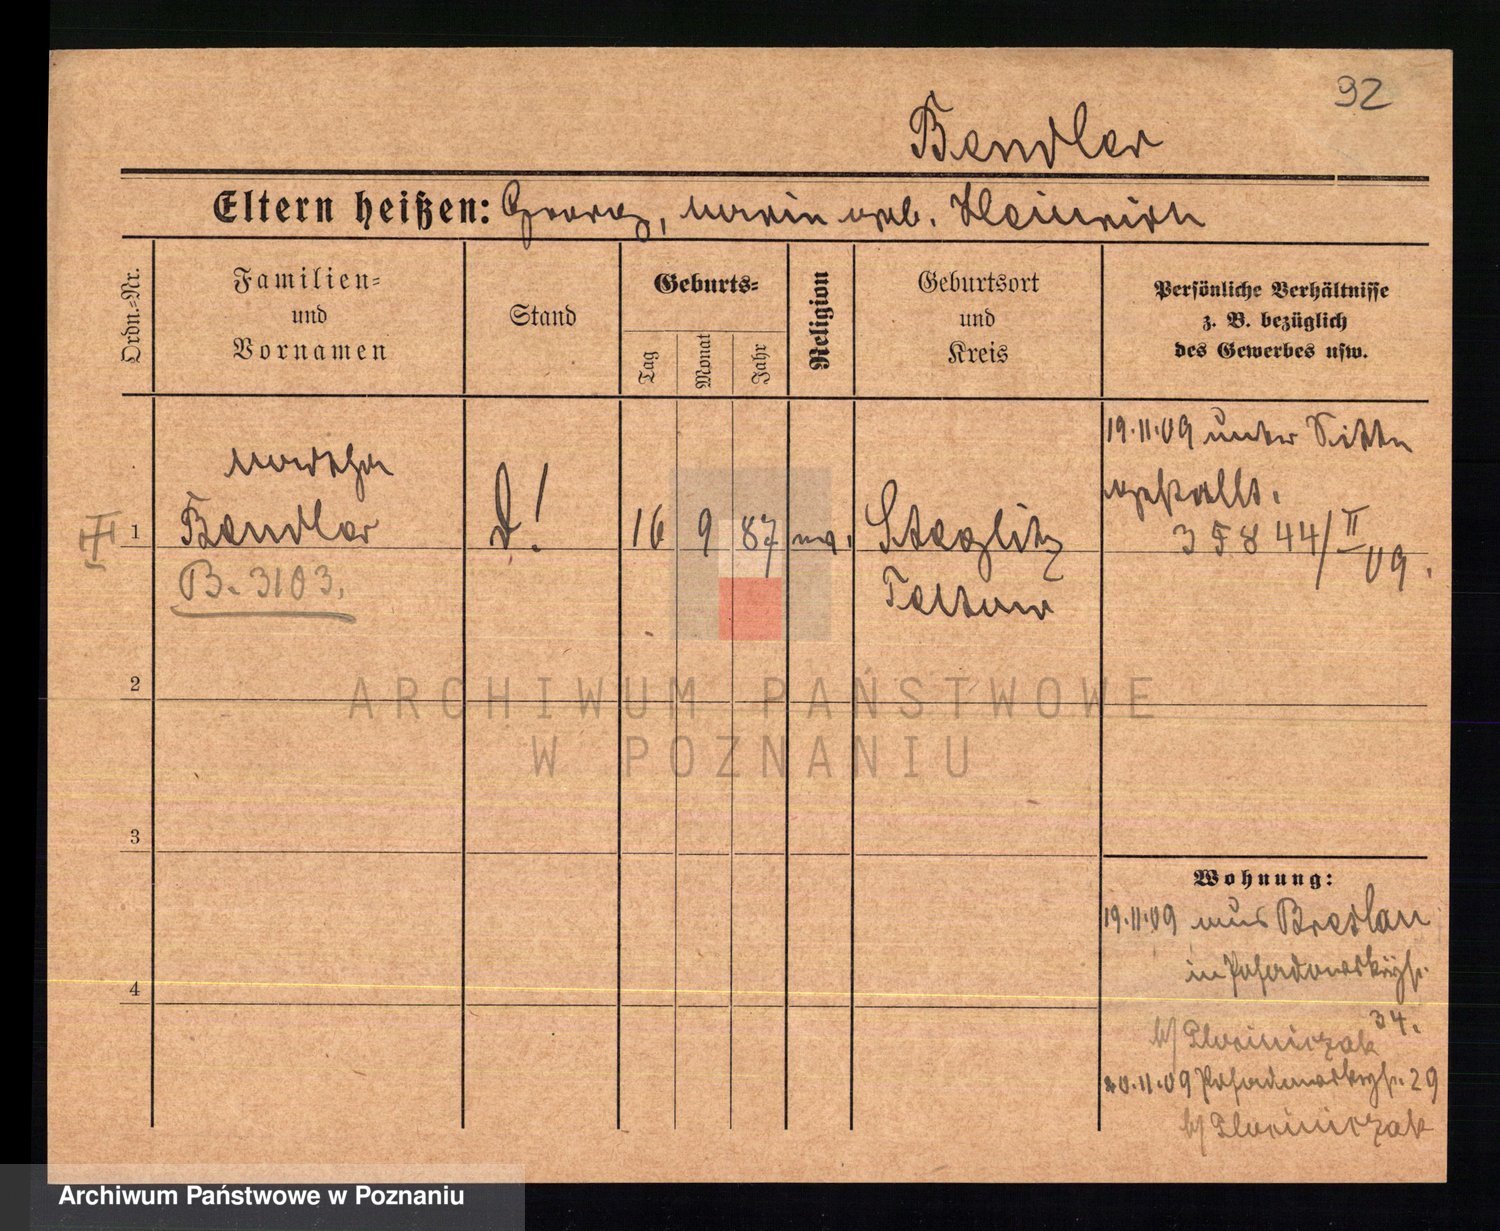 92
Bendler
Eltern heißen: Georg, Marie geb. Heinrich
Ordn.=Nr.
Familien=
und
Vornamen
Stand
Geburts=
Tag
Monat
Jahr
Religion
Geburtsort
und
Kreis
Persönliche Verhältnisse
z. B. bezüglich
des Gewerbes usw.
1
Martha
Bendler
B. 3103.
16 9 87
Steglitz
Teltow
19.11.09 unter Sitte
gestellt.
35844/II 09.
2
3
4
Wohnung:
19.11.09 aus Breslau
in Posadowskystr.
34.
b/
20.11.09 Posadowskystr. 29
b/
ARCHIWUM PAŃSTWOWE
W POZNANIU
Archiwum Państwowe w Poznaniu